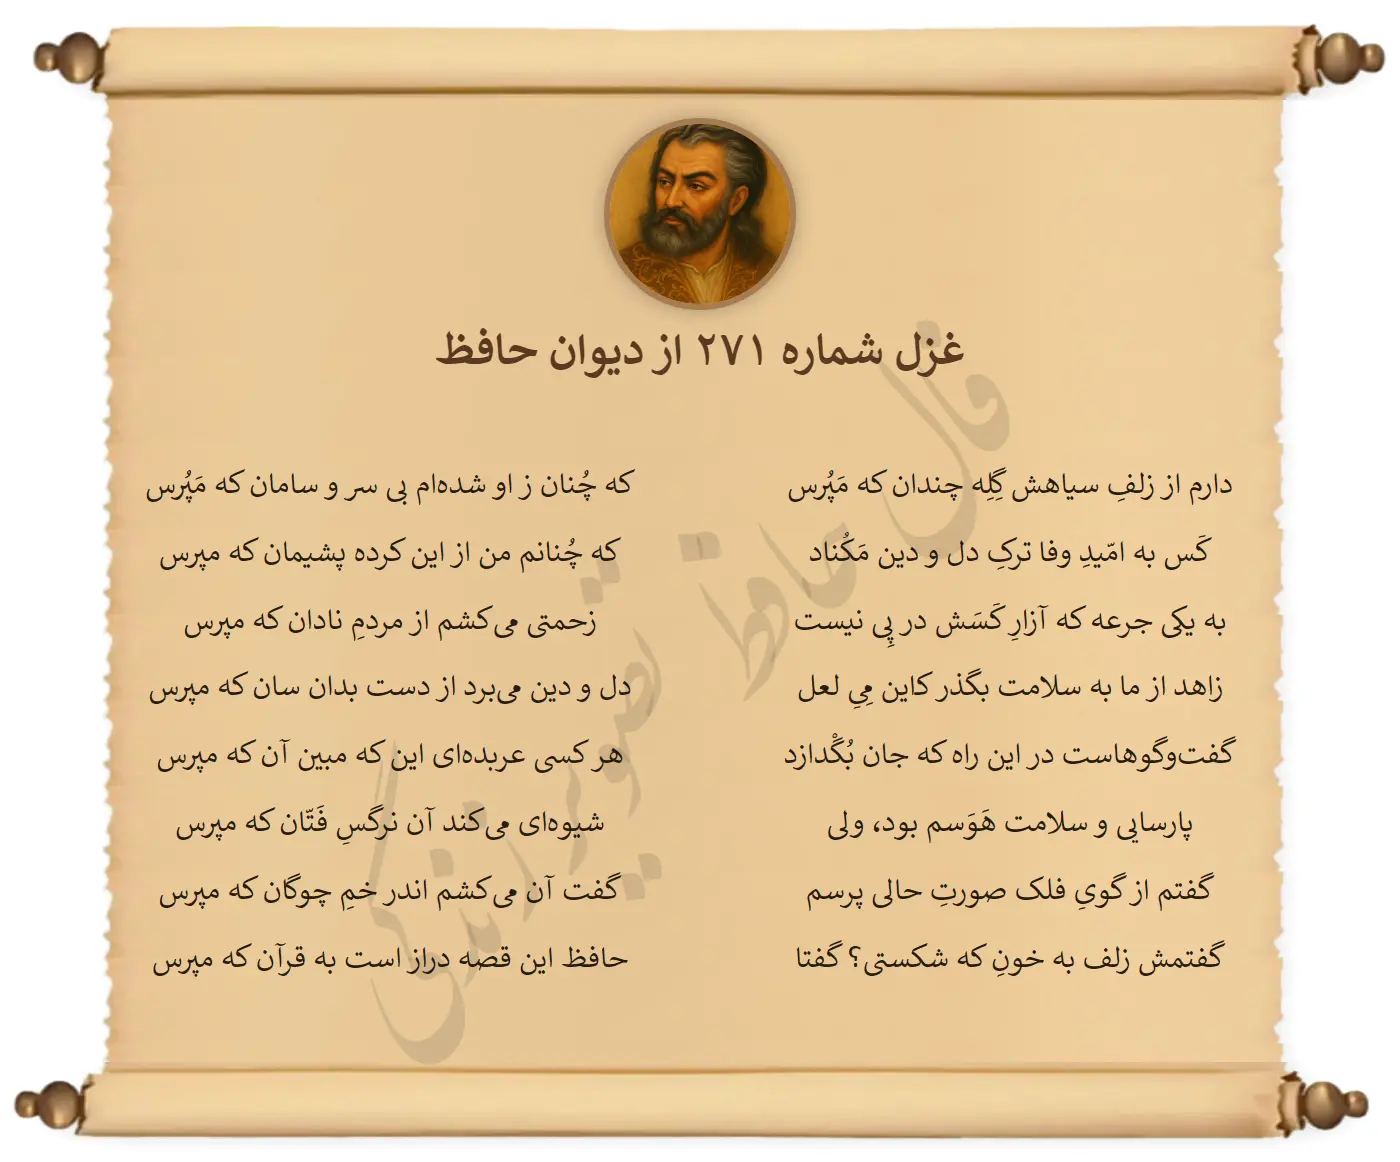 غزل شماره ۲۷۱ از دیوان حافظ
دارم از زلفِ سیاهش گِلِه چندان که مَپُرس که چُنان ز او شده‌ام بی سر و سامان که مَپُرس
کَس به امّیدِ وفا ترکِ دل و دین مَکُناد که چُنانم من از این کرده پشیمان که مپرس
به یکی جرعه که آزارِ کَسَش در پِی نیست زحمتی می‌کشم از مردمِ نادان که مپرس
زاهد از ما به سلامت بگذر کاین مِیِ لعل دل و دین می‌برد از دست بدان سان که مپرس
گفت‌وگوهاست در این راه که جان بُگْدازد هر کسی عربده‌ای این که مبین آن که مپرس
پارسایی و سلامت هَوَسم بود، ولی شیوه‌ای می‌کند آن نرگسِ فَتّان که مپرس
گفتم از گویِ فلک صورتِ حالی پرسم گفت آن می‌کشم اندر خمِ چوگان که مپرس
گفتمش زلف به خونِ که شکستی؟ گفتا حافظ این قصه دراز است به قرآن که مپرس
فال حافظ تصویر زندگی